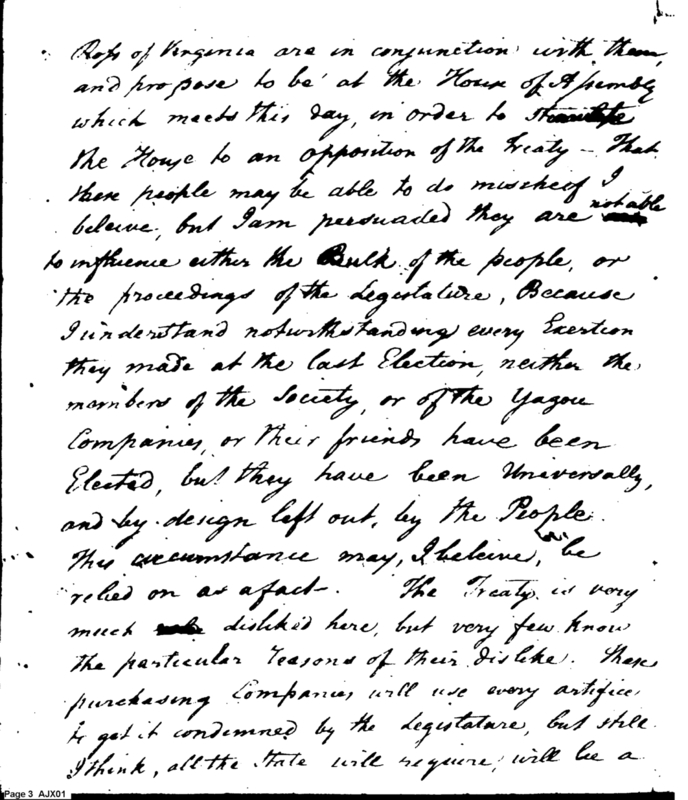 Ross of Virginia are in conjunction with them,
and propose to be at the House of Assembly
which meets this day, in order to
the House to an opposition of the Treaty – That
these people may be able to do mischeef I
beleive, but I am persuaded they are not able
to influence either the Bulk of the people, or
the proceedings of the Legislature, Because
I understand notwithstanding every Exertion
they made at the last Election, neither the
members of the Society, or of the Yazou
Companies, or their friends have been
Elected, but they have been Universally,
and by design left out, by the People.
This circumstance may, I beleive, be
relied on as a fact – The Treaty is very
much disliked here, but very few know
the particular reasons of their dislike. These
purchasing Companies will use every artifice
to get it condemned by the Legislature, but still
I think, all the State will require, will be a
Page 3 AJX01